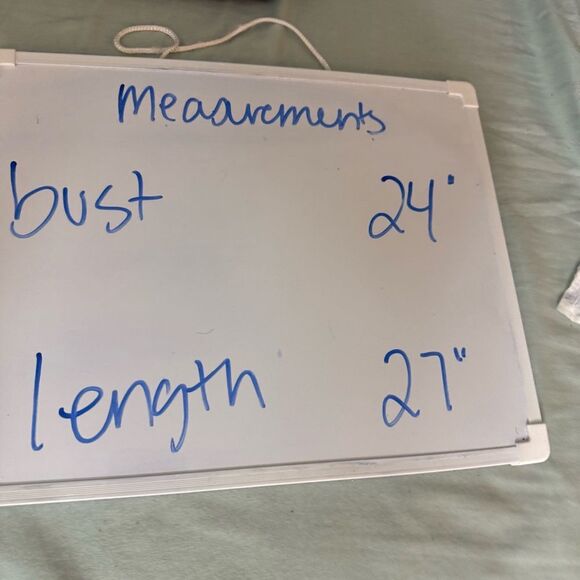 Meaarements
bust 24"
length 27"